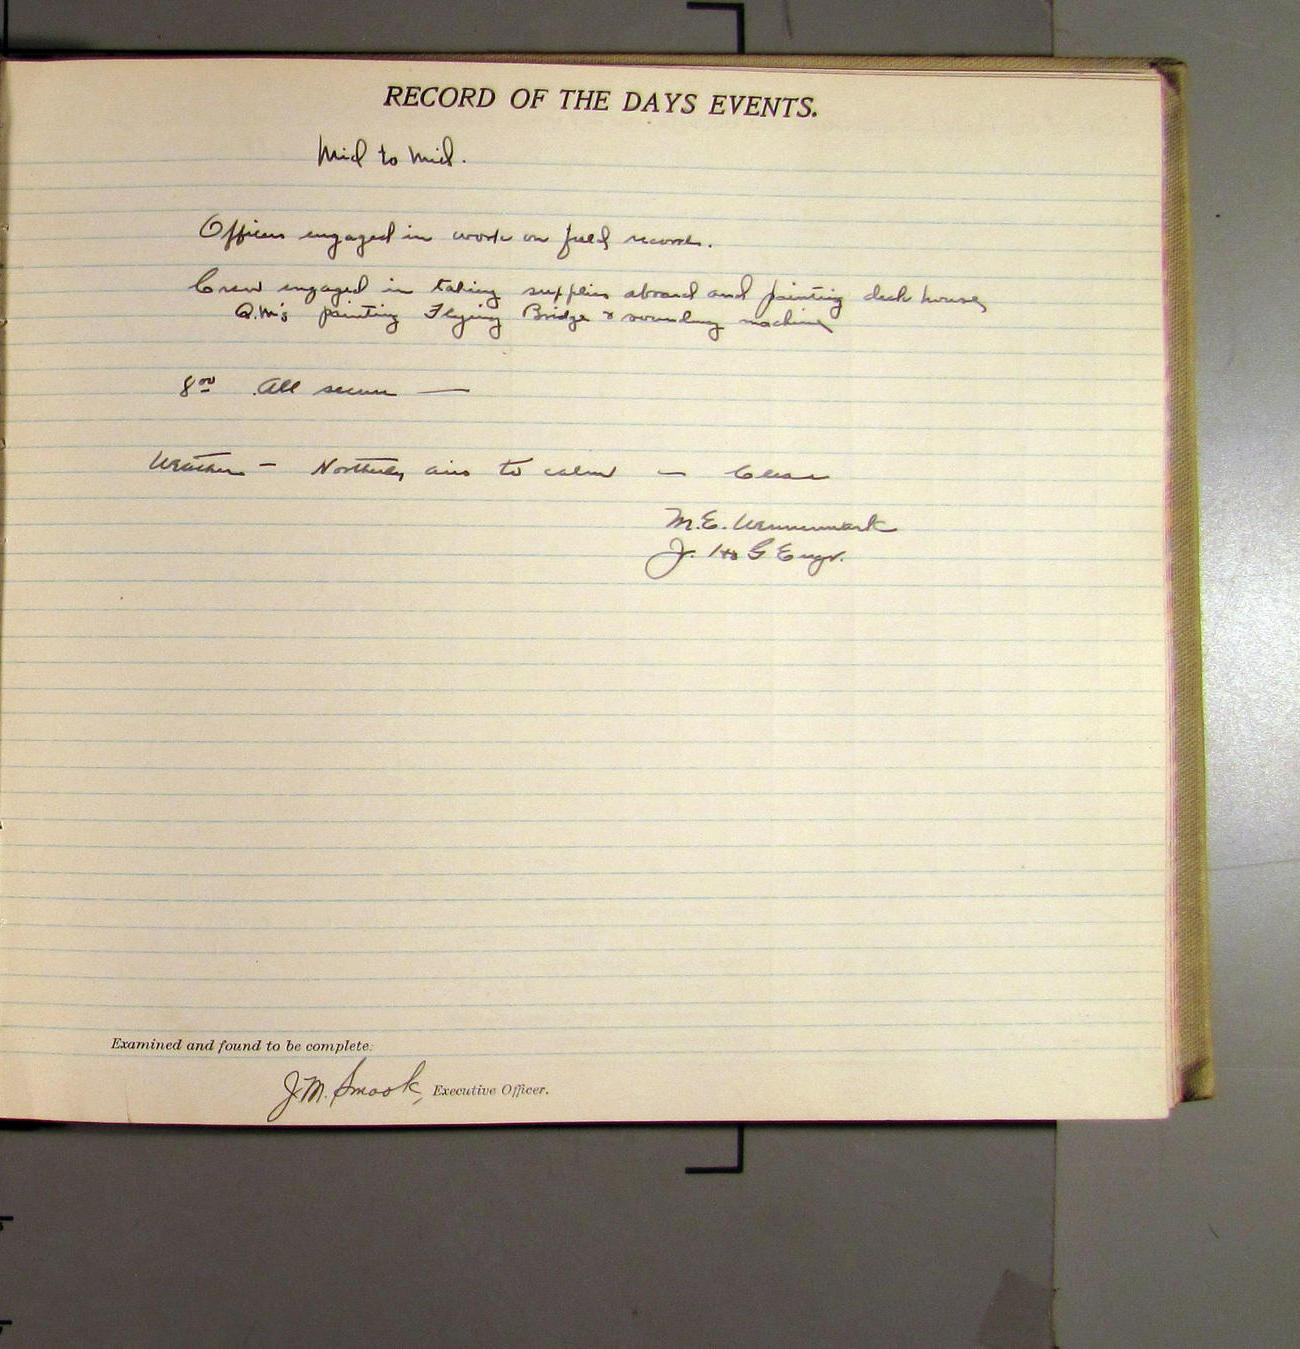 RECORD OF THE DAYS EVENTS.
Mid to Mid.
Officers engaged in work on field records.
Crew engaged in taking supplies aboard and painting deck houses
Q.M's painting Flying Bridge & sounding machine
8⁰⁰ All secure —
Weather — Northerly airs to calm — Clear
M.E. Wennermark
J. H & G Engr.
Examined and found to be complete:
J.M. Smook, Executive Officer.